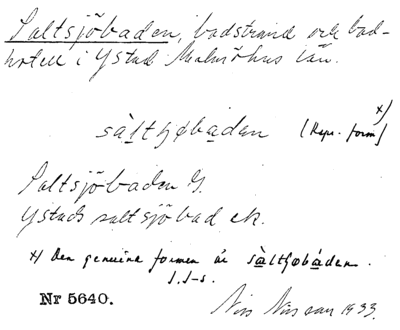 Saltsjöbaden, badstrand och bad-
hotell i Ystad Malmöhus län.
x)
sàltʃøbaden (Repr. form)
Saltsjöbaden G.
Ystads saltsjöbad ek.
x) Den genuina formen är sàltʃøbáden.
S.J-s.
Nr 5640.
Nils Nilsson 1933.